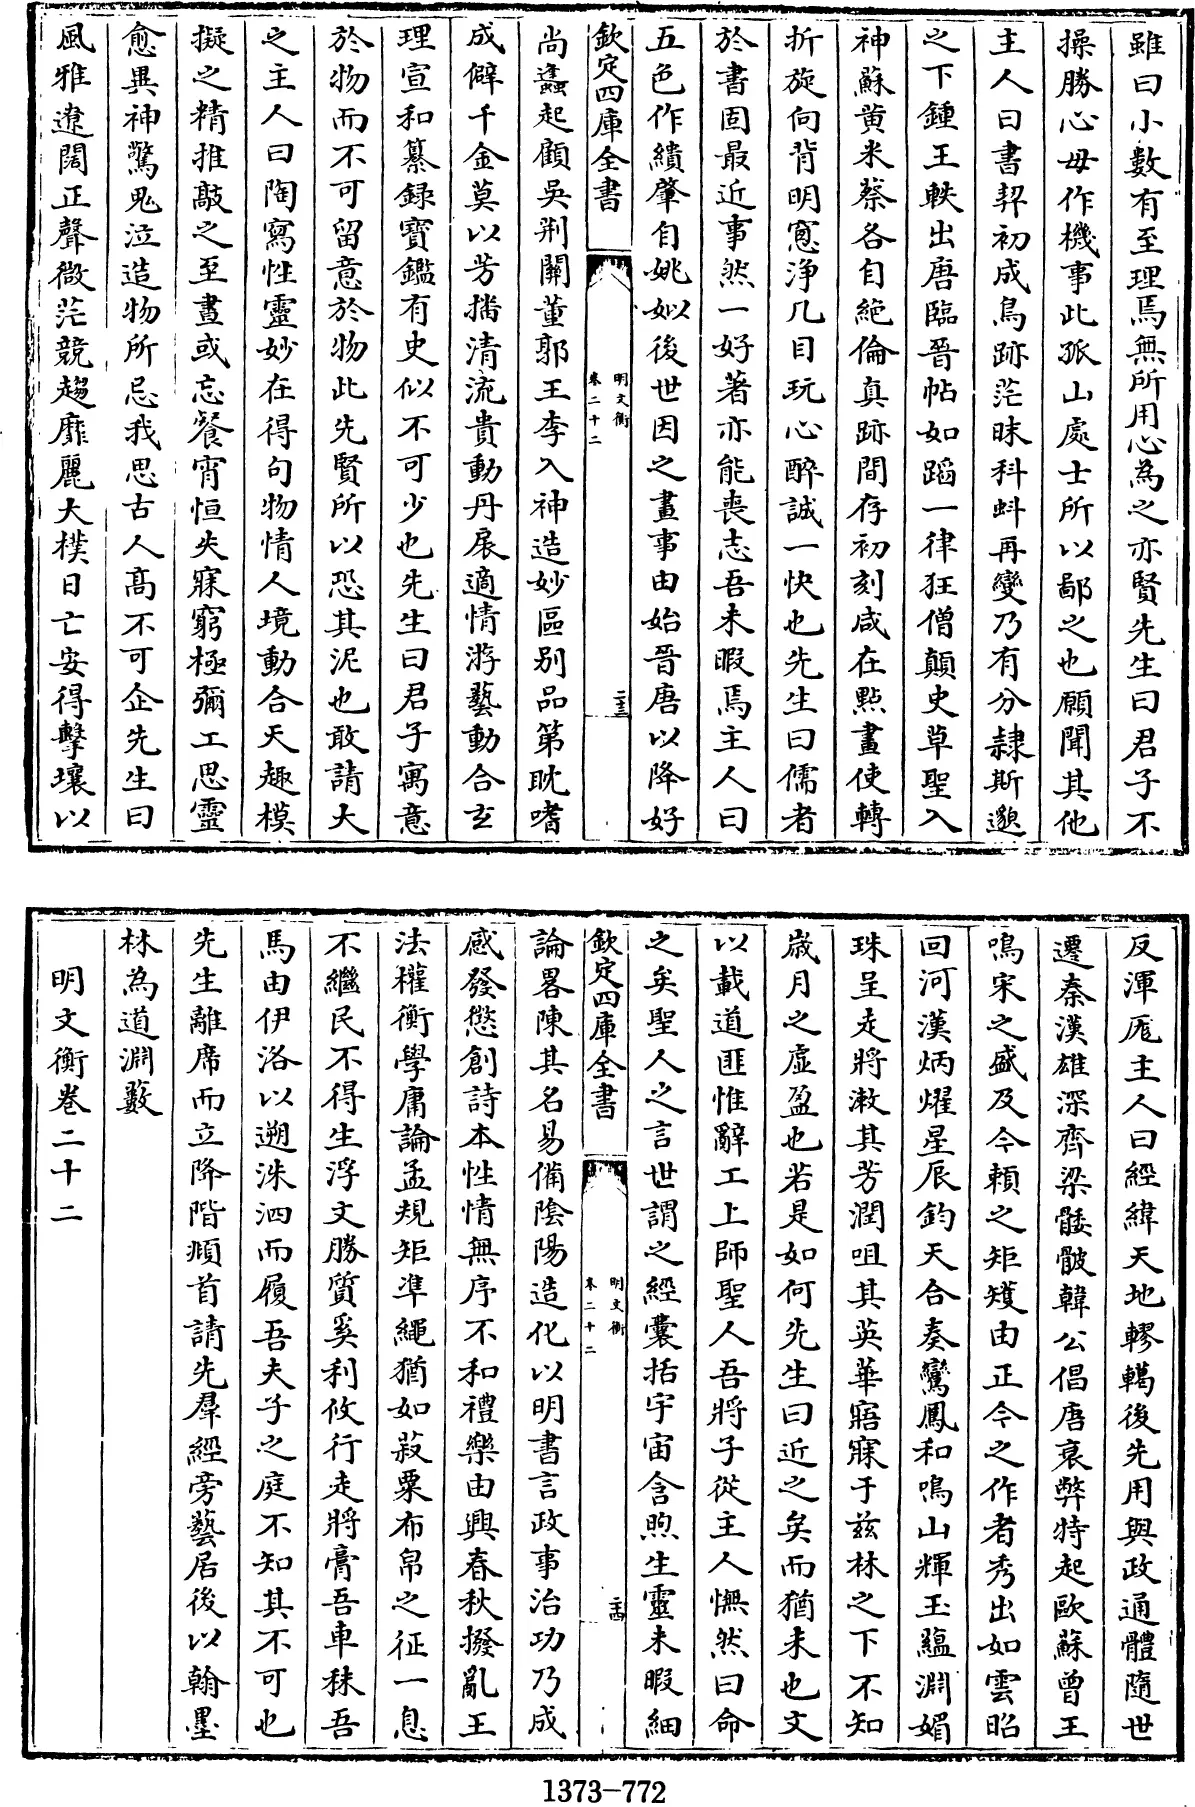 雖曰小數有至理焉無所用心為之亦賢先生曰君子不
操勝心毋作機事此孤山處士所以鄙之也願聞其他
主人曰書契初成鳥跡茫昧科蚪再變乃有分隷斯邈
之下鍾王軼出唐臨晉帖如蹈一律狂僧顛史草聖入
神蘇黄米蔡各自絶倫真跡間存初刻咸在點畫使轉
折旋向背明窻淨几目玩心醉誠一快也先生曰儒者
於書固最近事然一好著亦能喪志吾未暇焉主人曰
五色作繢肇自姚姒後世因之畫事由始晉唐以降好
欽定四庫全書
明文衡
卷二十二
二十三
尚蠭起顧吳荆關董郭王李入神造妙區别品第眈嗜
成僻千金莫以芳播清流貴動丹扆適情游藝動合玄
理宣和纂録寶鑑有史似不可少也先生曰君子寓意
於物而不可留意於物此先賢所以恐其泥也敢請大
之主人曰陶寫性靈妙在得句物情人境動合天趣模
擬之精推敲之至晝或忘餐宵恒失寐窮極彌工思靈
愈異神驚鬼泣造物所忌我思古人高不可企先生曰
風雅遼闊正聲微茫競趨靡麗大樸日亡安得擊壤以
反渾厖主人曰經緯天地轇轕後先用與政通體隨世
遷秦漢雄深齊梁骫骳韓公倡唐衰弊特起歐蘇曾王
鳴宋之盛及今頼之矩矱由正今之作者秀出如雲昭
回河漢炳燿星辰鈞天合奏鸞鳳和鳴山輝玉韞淵媚
珠呈走將漱其芳潤咀其英華寤寐于兹林之下不知
歳月之虛盈也若是如何先生曰近之矣而猶未也文
以載道匪惟辭工上師聖人吾將子從主人憮然曰命
之矣聖人之言世謂之經囊括宇宙含煦生靈未暇細
欽定四庫全書
明文衡
卷二十二
二十四
論畧陳其名易備陰陽造化以明書言政事治功乃成
感發懲創詩本性情無序不和禮樂由興春秋撥亂王
法權衡學庸論孟規矩凖繩猶如菽粟布帛之征一息
不繼民不得生浮文勝質奚利攸行走將膏吾車秣吾
馬由伊洛以遡洙泗而履吾夫子之庭不知其不可也
先生離席而立降階頫首請先羣經旁藝居後以翰墨
林為道淵藪
明文衡卷二十二
1373-772